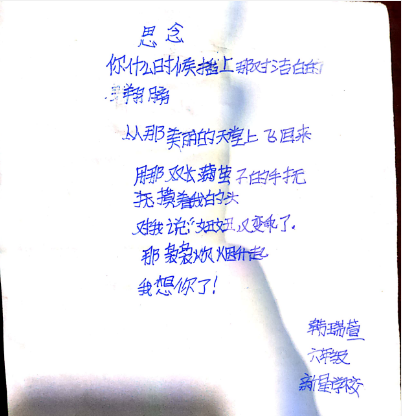 思念
你什么时候插上那对洁白的
翅膀
从那美丽的天堂上飞回来
用那双长满茧子的手抚
抚摸着我的头
对我说“妞妞又变乖了.
那袅袅炊烟升起
我想你了!
韩瑞萱
六年级
新星学校